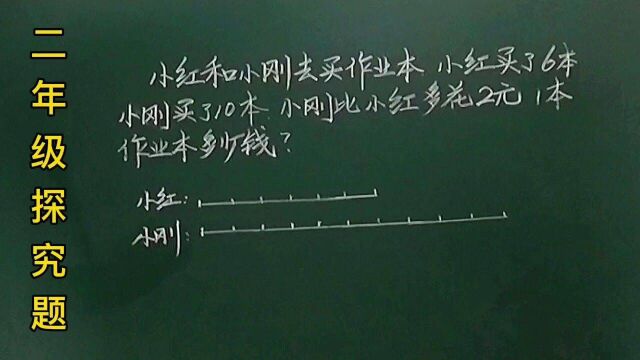 二年级探究题
小红和小刚去买作业本 小红买了6本
小刚买了10本 小刚比小红多花2元 1本
作业本多少钱?
小红:
小刚: